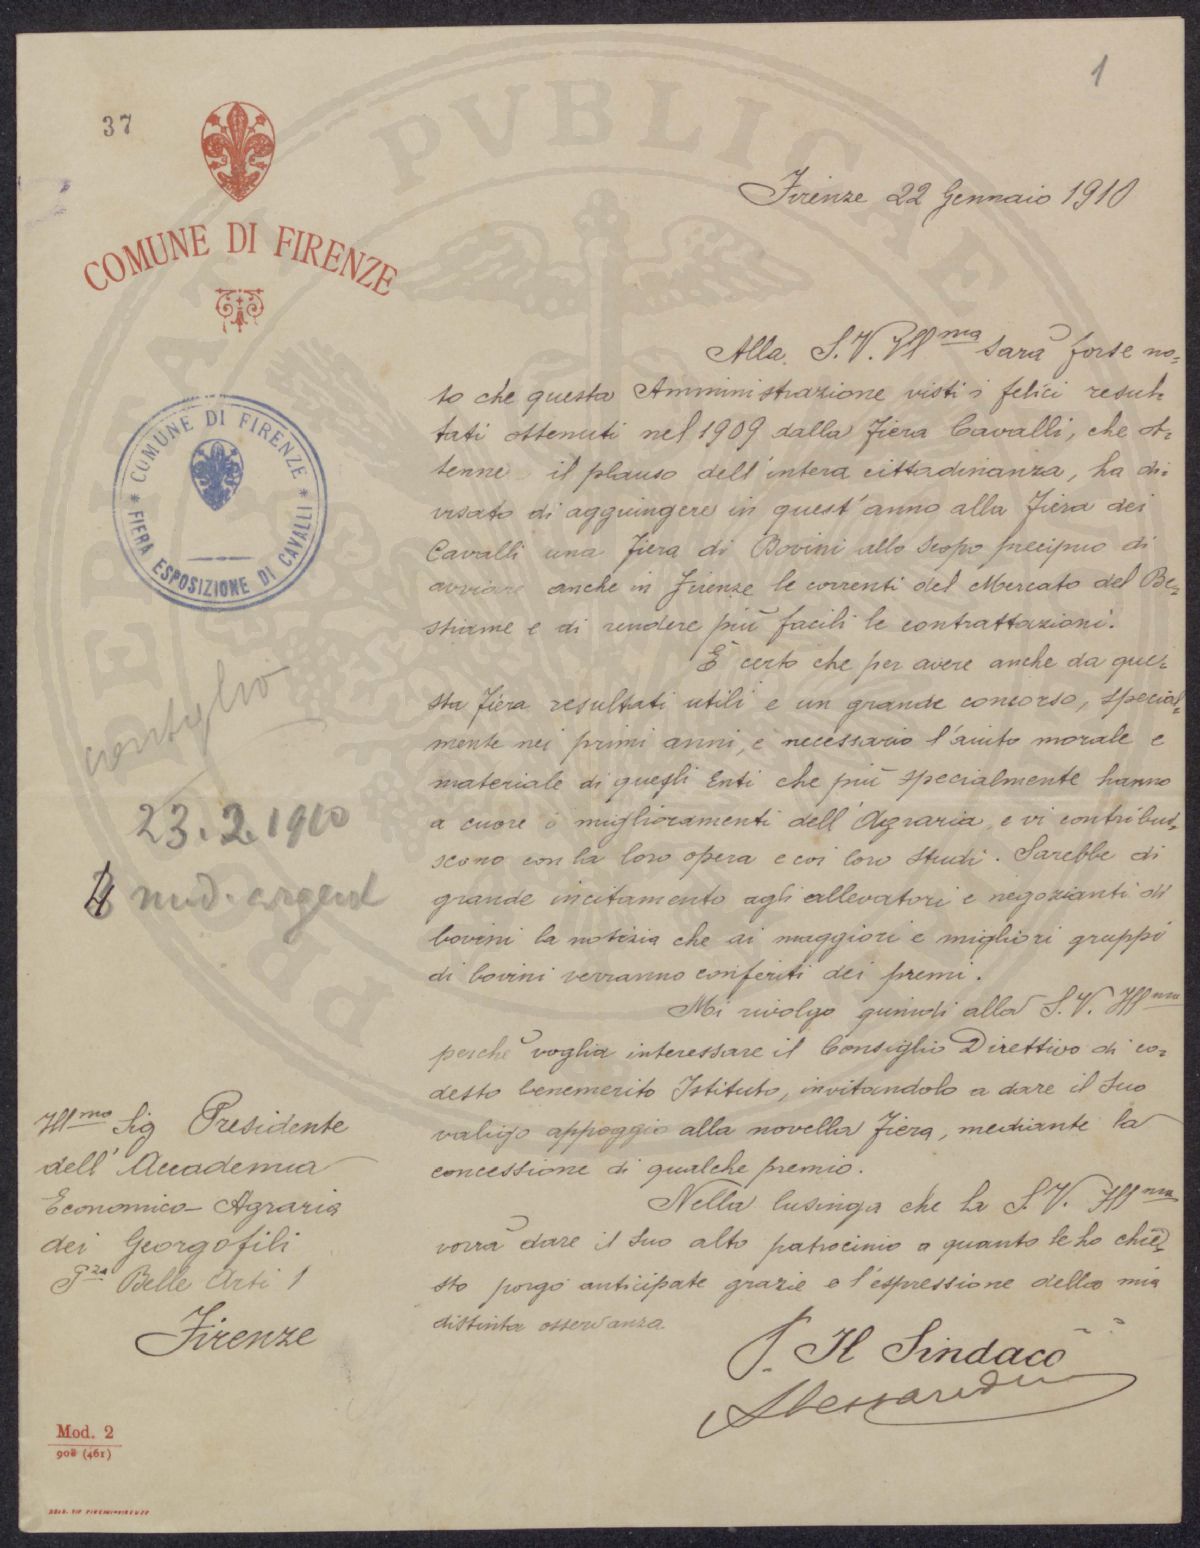 1
37
COMUNE DI FIRENZE
Firenze 22 Gennaio 1910
COMUNE DI FIRENZE
* FIERA ESPOSIZIONE DI CAVALLI *
Alla S. V. Ill ma sarà forse no=
to che questa Amministrazione visti i felici resul=
tati ottenuti nel 1909 dalla Fiera Cavalli, che ot=
tenne il plauso dell'intera cittadinanza, ha di=
visato di aggiungere in quest'anno alla Fiera dei
Cavalli una Fiera di Bovini allo scopo precipuo di
avviare anche in Firenze le correnti del Mercato del Be=
stiame e di rendere più facili le contrattazioni.
È certo che per avere anche da que=
sta Fiera resultati utili e un grande concorso, special=
mente nei primi anni, è necessario l'aiuto morale e
materiale di quegli Enti che più specialmente hanno
a cuore i miglioramenti dell'Agraria e vi contribui=
scono con la loro opera e coi loro studi. Sarebbe di
grande incitamento agli allevatori e negozianti di
bovini la notizia che ai maggiori e migliori gruppi
di bovini verranno conferiti dei premi.
Mi rivolgo quindi alla S. V. Ill ma
perchè voglia interessare il Consiglio Direttivo di co=
desto benemerito Istituto, invitandolo a dare il suo
valido appoggio alla novella Fiera, mediante la
concessione di qualche premio.
Nella lusinga che la S. V. Ill ma
vorrà dare il suo alto patrocinio a quanto le ho chie=
sto porgo anticipate grazie e l'espressione della mia
distinta osservanza
P. Il Sindaco
consiglio
23.2.1910
med. argent
Ill mo Sig Presidente
dell'Accademia
Economico-Agraria
dei Georgofili
P za Belle Arti 1
Firenze
Mod. 2
908 (461)